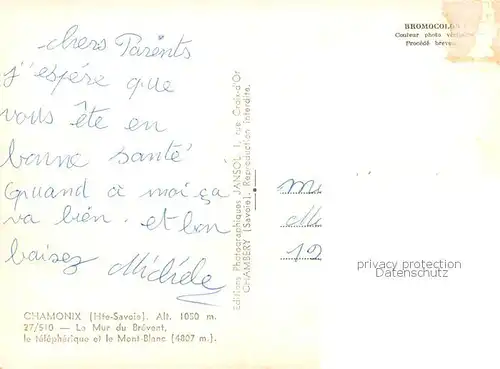 chers Parents
j'espère que
vous ête en
bonne santé
Quand a moi ça
va bien. et bon
baisez Michèle
CHAMONIX (Hte-Savoie). Alt. 1050 m.
27/510 — Le Mur du Brévent,
le téléphérique et le Mont-Blanc (4807 m.).
Editions Photographiques JANSOL 1, rue Croix-d'Or
CHAMBERY (Savoie). Reproduction interdite.
BROMOCOLOR
Couleur photo
Procédé
12
privacy protection
Datenschutz